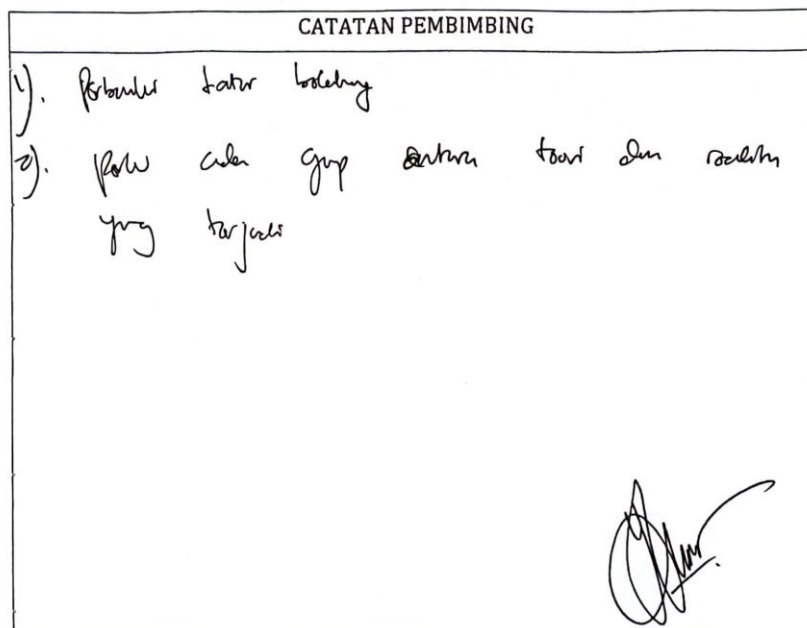 CATATAN PEMBIMBING
1). Perbaiki latar belakang
2). perlu ada gap antara teori dan realita
yang terjadi